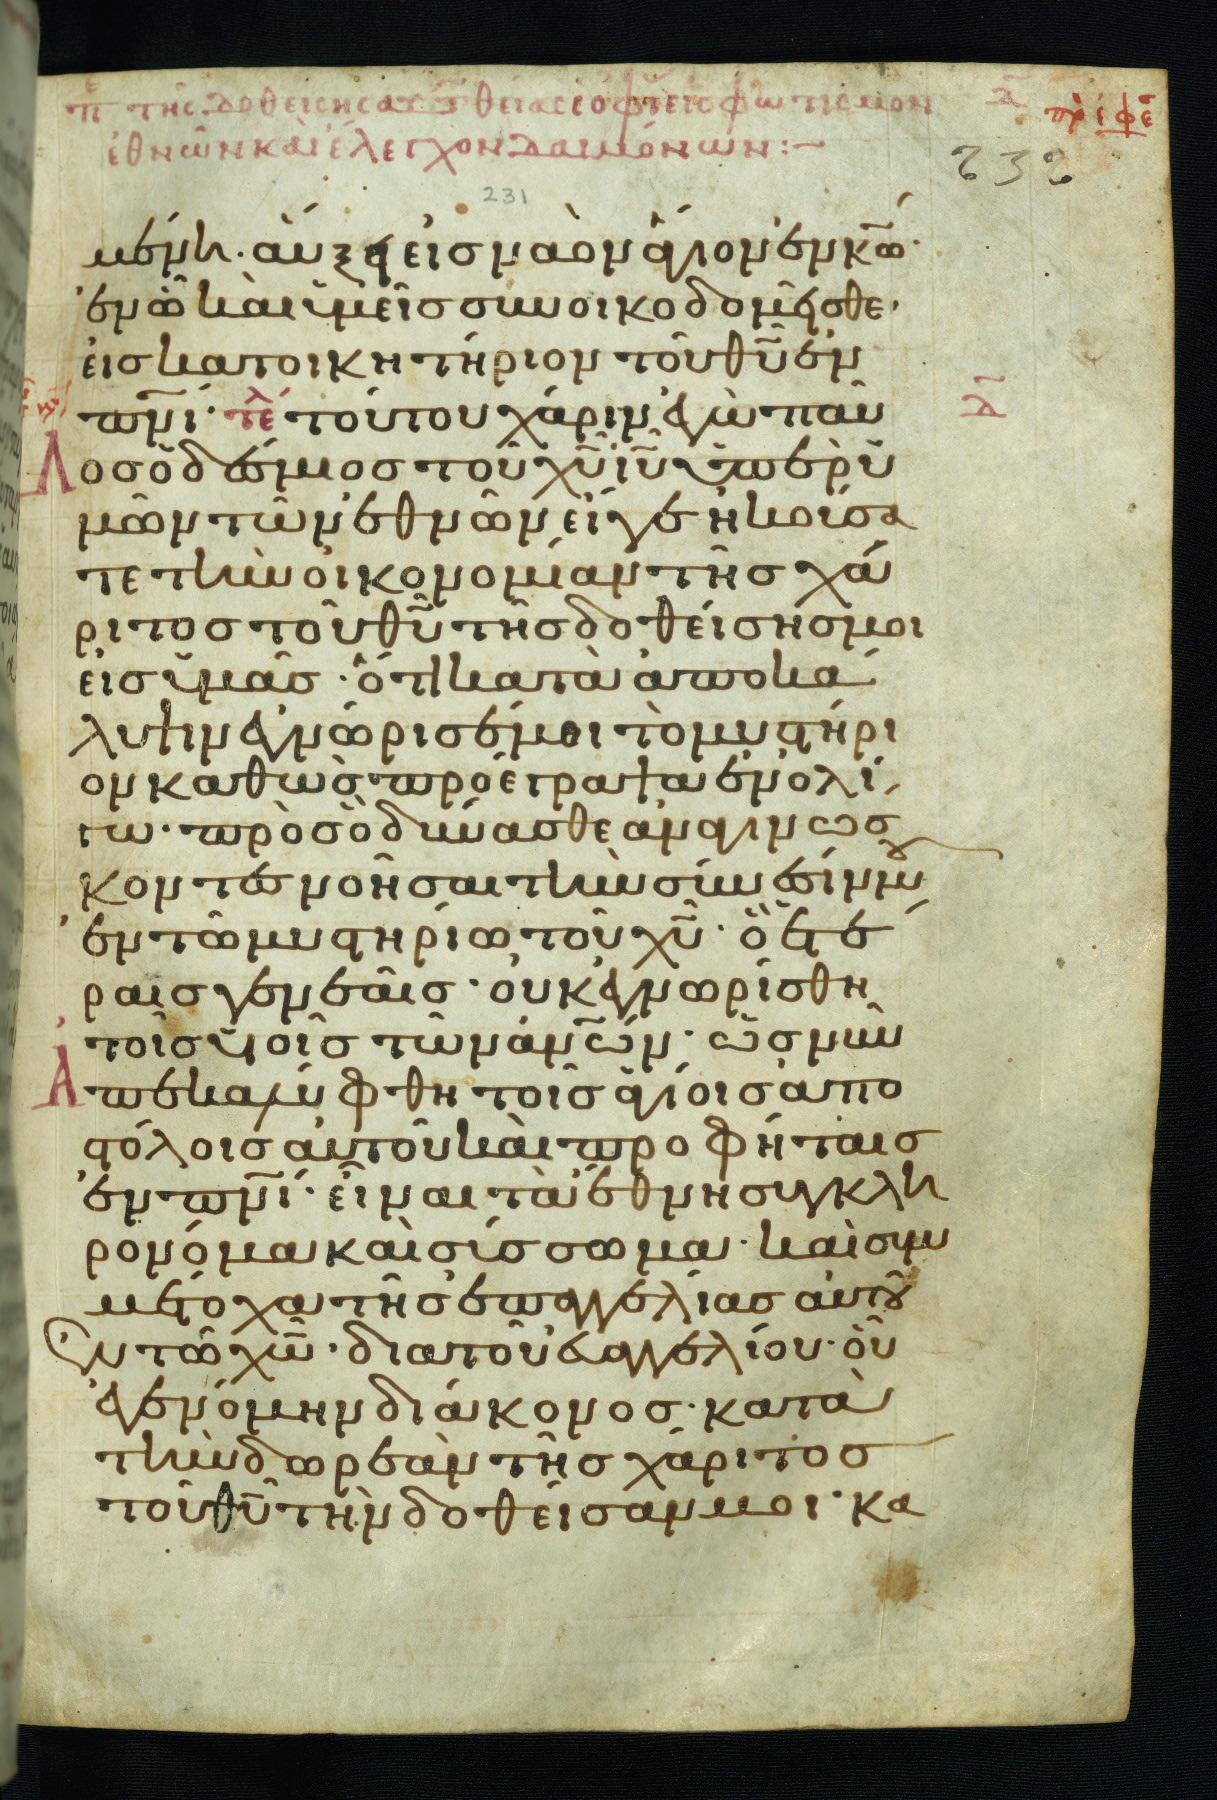 πε της δοθεισης αυτ θειας σοφ εις φωτισμον
ἐθνῶν καὶ ἔλεγχον δαιμόνων :~
πρ̀ ἐφε
λ
232
231
μένη· ἀύξει εἰσ ναὸν ἅγιον ἐν κω̅·
ἐν ὧ καὶ ὑμεῖσ συνοικοδομῆσθε·
εἰσ κατοικητήριον τοῦ θυ̅ ἐν
πνι̅· τε τούτου χάριν ἐγὼ παῦ
λοσ ὁ δέσμιοσ τοῦ χυ̅ ιυ̅ ὑπὲρ ὑ
μῶν τῶν ἐθνῶν εἴγε ἠκούσα
τε τὴν οἰκονομίαν τῆσ χά
ριτοσ τοῦ θυ̅ τῆσ δοθείσησ μοι
εἰσ ὑμᾶσ· ὅτι κατὰ ἀποκά
λυψιν ἐγνώρισέ μοι τὸ μυστήρι
ον καθὼσ προέγραψα ἐν ὀλί
γω· πρὸσ ὃ δύνασθε ἀναγινώσ
κοντεσ νοῆσαι τὴν σύνεσίν μου
ἐν τῶ μυστηρίω τοῦ χυ̅· ὃ ἑτέ
ραισ γενεαῖσ· οὐκ ἐγνωρίσθη
τοῖσ υἱοῖσ τῶν ἀνω̅ν· ὡσ νῦν
ἀπεκαλύφθη τοῖσ ἁγίοισ ἀπο
στόλοισ αὐτοῦ καὶ προφήταισ
ἐν πνι̅· εἶναι τὰ ἔθνη συγκλη
ρονόμα καὶ σύσσωμα· καὶ συμ
μέτοχα τῆσ ἐπαγγελίασ αὐτοῦ
ἐν τῶ χω̅· διὰ τοῦ εὐαγγελίου· οὗ
ἐγενόμην διάκονοσ· κατὰ
τὴν δωρεὰν τῆσ χάριτοσ
τοῦ θυ̅ τὴν δοθεῖσαν μοι· κα